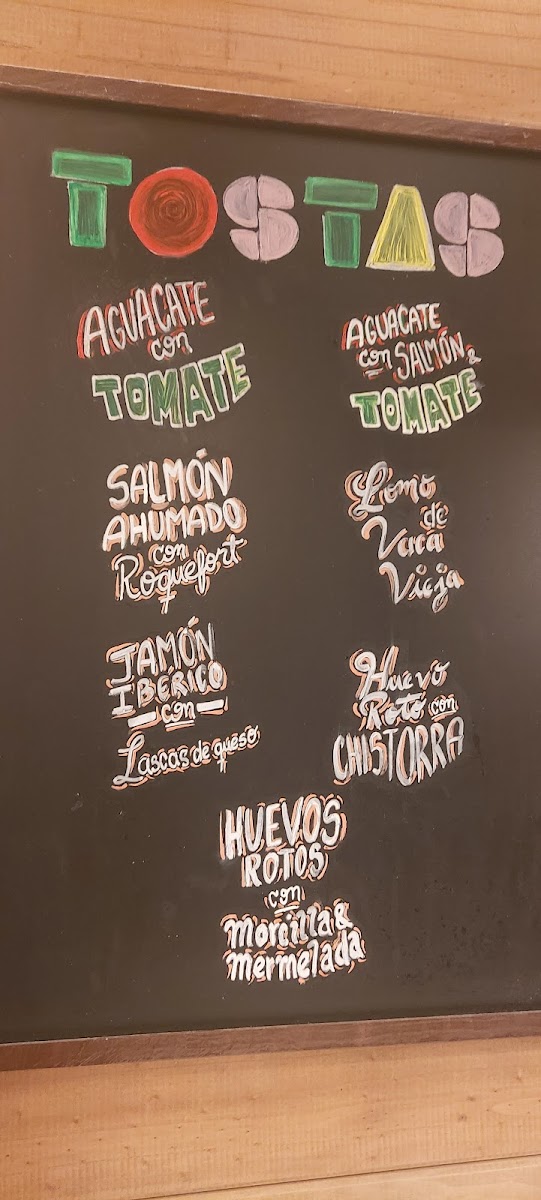 TOSTAS
AGUACATE
con
TOMATE
AGUACATE
con SALMÓN &
TOMATE
SALMÓN
AHUMADO
con
Roquefort
Lomo
de
Vaca
Vieja
JAMÓN
IBERICO
con
Lascas de queso
Huevo
Roto con
CHISTORRA
HUEVOS
ROTOS
con
Morcilla &
mermelada